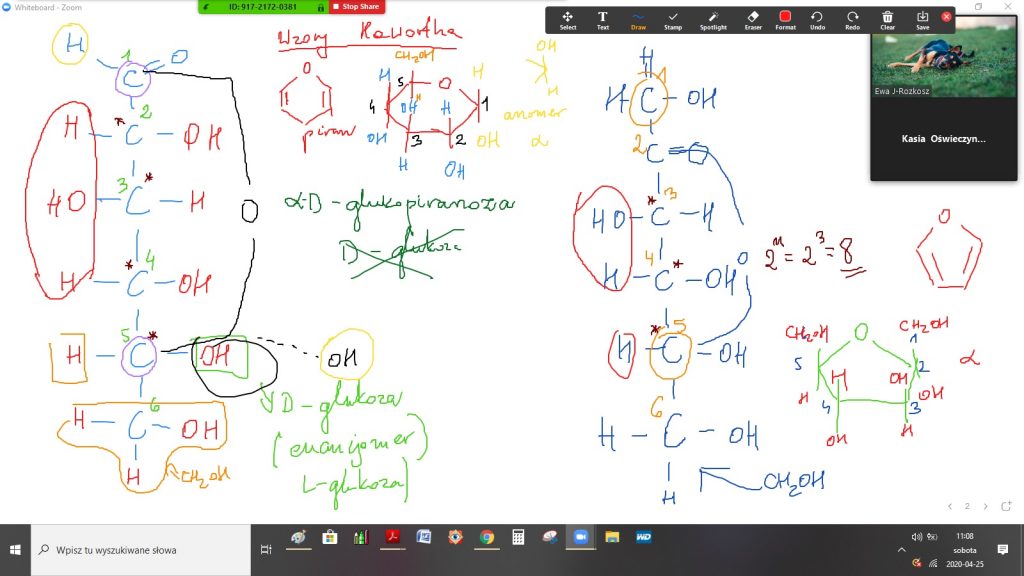 Whiteboard - Zoom
ID: 917-2172-0381
Stop Share
Select
Text
Draw
Stamp
Spotlight
Eraser
Format
Undo
Redo
Clear
Save
Ewa J-Rozkosz
Kasia Oświeczyn...
H
1
C
O
2
H
*
C
OH
3
HO
C
*
H
4
H
*
C
OH
5
H
C
*
OH
6
H
C
OH
H
CH2OH
O
OH
D-glukoza
(enancjomer
L-glukoza)
Wzory Hawortha
O
piran
CH2OH
H
5
O
H
4
OH
H
H
1
OH
3
2
OH
H
OH
OH
H
anomer
α
α-D-glukopiranoza
D-glukoza
H
1
H
C
OH
2
C
O
3
HO
*
C
H
4
H
C
*
OH
O
5
H
*
C
OH
6
H
C
OH
H
CH2OH
2ⁿ = 2³ = 8
O
CH2OH
O
CH2OH
1
5
2
α
H
OH
H
4
3
OH
OH
H
2
Wpisz tu wyszukiwane słowa
WD
11:08
sobota
2020-04-25